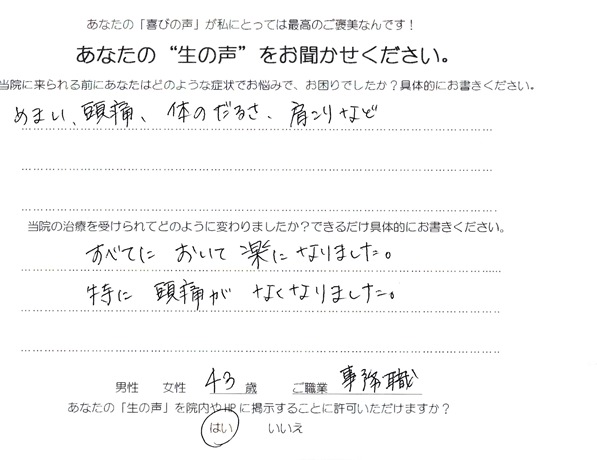 あなたの「喜びの声」が私にとっては最高のご褒美なんです！
あなたの“生の声”をお聞かせください。
当院に来られる前にあなたはどのような症状でお悩みで、お困りでしたか？具体的にお書きください。
めまい、頭痛、体のだるさ、肩こりなど
当院の治療を受けられてどのように変わりましたか？できるだけ具体的にお書きください。
すべてにおいて楽になりました。
特に頭痛がなくなりました。
男性 女性 43歳 ご職業 事務職
あなたの「生の声」を院内やHPに掲示することに許可いただけますか？
はい いいえ